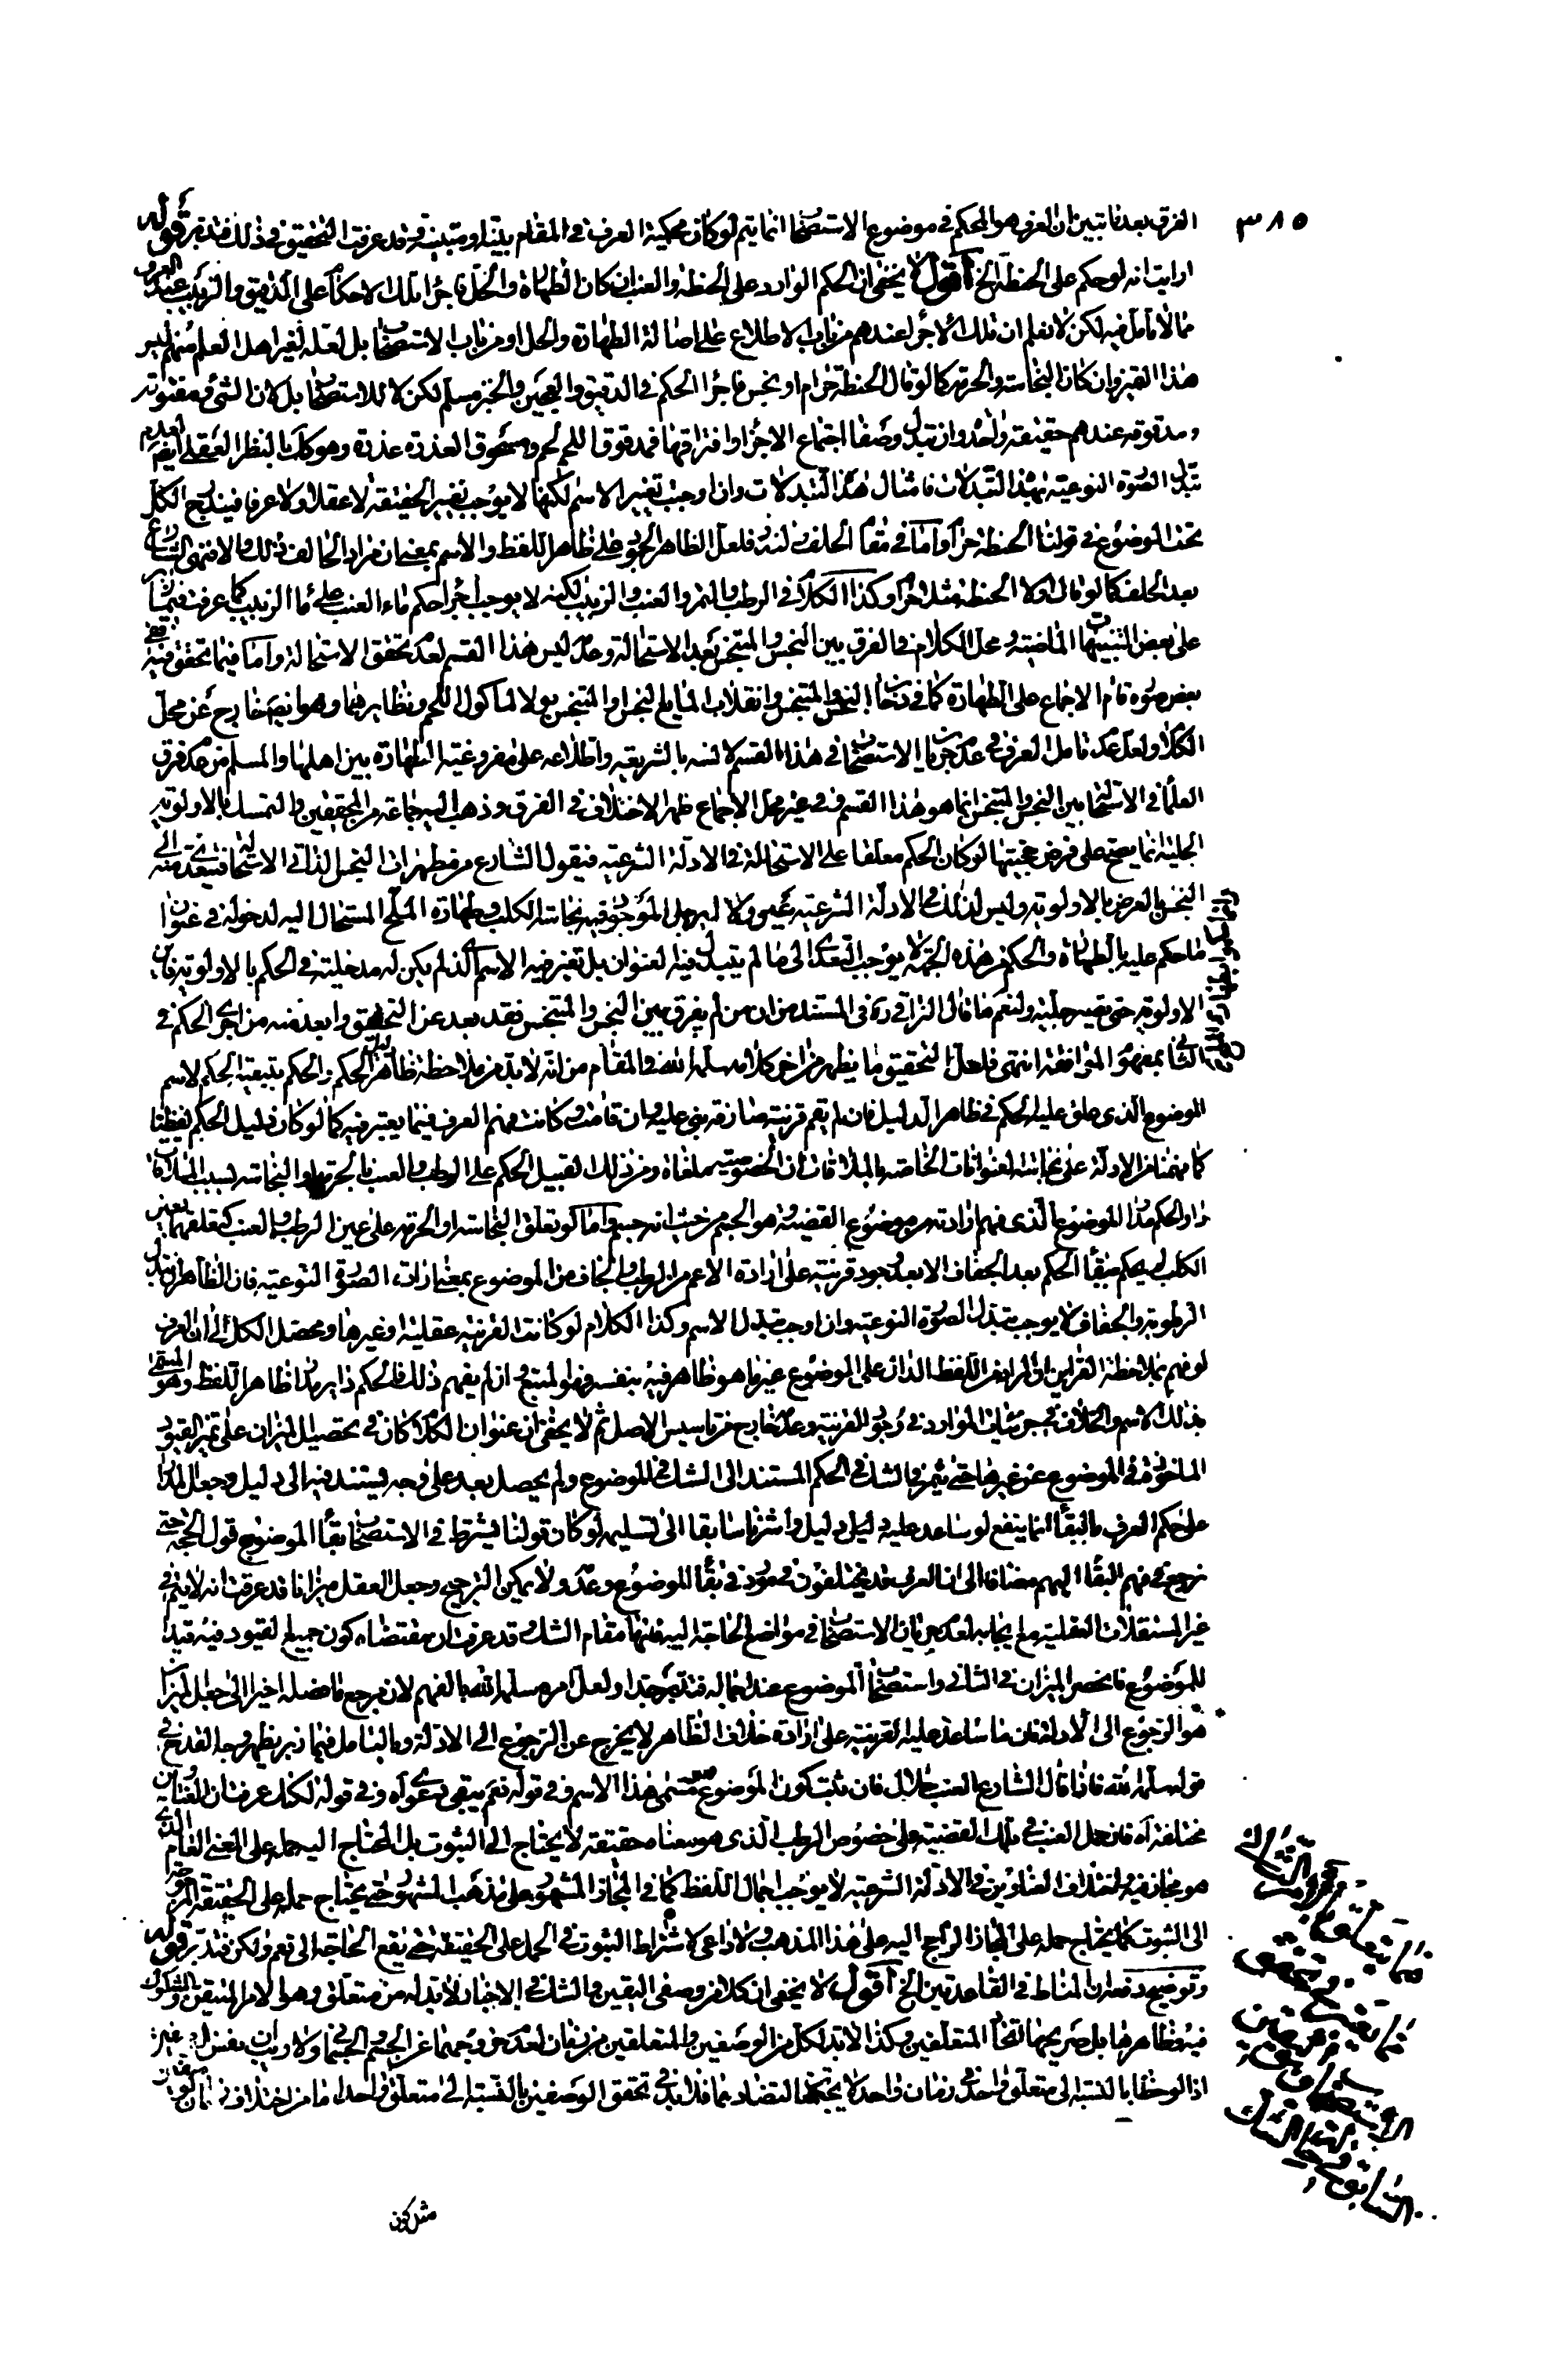 ٣٨٥
الفرق بعد ما تبين ان العرف هو المحكم في موضوع الاستصحاب انما يتم لو كان محكمية العرف في المقام بيّنا او متبينة وقد عرفت التحقيق في ذلك فتدبر قوله
ارايت انه لو حكم على الحنطة الخ اقول لا يخفى ان الحكم الوارد على الحنطة والعنب ان كان الطهارة والحل فاجراء تلك الاحكام على الدقيق والزبيب عند العرف
مما لا تامل فيه لكن لا نعلم ان ذلك الاجراء عندهم من باب الاطلاع على اصالة الطهارة والحل او من باب الاستصحاب بل لعله لغير اهل العلم منهم ليس
هذا القبيل وان كان النجاسة والحرمة كما لو قال الحنطة حرام او نجس فاجراء الحكم في الدقيق والعجين والخبز مسلم لكن لا للاستصحاب بل لان الشيء ومفتوته
ومدقوقه عندهم حقيقة واحدة وان تبدل وصفا اجتماع الاجزاء وافتراقها فمدقوق اللحم لحم ومسحوق العذرة عذرة وهو كك بالنظر العقلي ايضا لعدم
تبدل الصورة النوعية بهذه التبدلات فامثال هذه التبدلات وان اوجبت تغيير الاسم لكنها لا يوجب تغيير الحقيقة لا عقلا ولا عرفا فيندرج الكل
تحت الموضوع في قولنا الحنطة حرام واما في مقام الحلف والنذر فلعل الظاهر الجري على ظاهر اللفظ والاسم بمعنى ان مراد الحالف ذلك والا فنهي الشارع
بعد الحلف كما لو قال اولا الحنطة مثلا حرام وكذا الكلام في الرطب والتمر والعنب والزبيب لكنه لا يوجب اجراء حكم ماء العنب على ماء الزبيب كما عرفت فيما
على بعض التنبيهات الماضية ومحل الكلام في الفرق بين النجس والمتنجس بعد الاستحالة وعدمه ليس هذا القسم لعدم تحقق الاستحالة واما فيما تحقق فيه ففي
بعض صوره قام الاجماع على الطهارة كما في دخان النجس والمتنجس وانقلاب المايع النجس او المتنجس بولا لماكول اللحم ونظايرهما وهو ايضا خارج عن محل
الكلام ولعل عدم تامل العرف في عدم جريان الاستصحاب في هذا القسم لانسه بالشريعة واطلاعه على مفروغية الطهارة بين اهلها والمسلم من عدم فرق
العلماء في الاستحالة بين النجس والمتنجس انما هو هذا القسم ففي غير محل الاجماع ظهر الاختلاف في الفرق وذهب اليه جماعة من المحققين والتمسك بالاولوية
الجلية انما يصح على فرض حجيتها لو كان الحكم معلقا على الاستحالة في الادلة الشرعية فيقول الشارع مثلا مطهر ان النجس الذاتي الاستحالة فيتعدى منه الى
النجس بالعرض بالاولوية وليس لذلك في الادلة الشرعية عين ولا اثر بل الموجود فيه نجاسة الكلب وطهارة الملح المستحال اليه لدخوله في عنوان
ما حكم عليه بالطهارة والحكم من هذه الجهة لا يوجب التعدى الى ما لم يتبدل فيه العنوان بل تغير فيه الاسم الذي لم يكن له مدخلية في الحكم بالاولوية فاين
الاولوية حتى تصير جلية ولنعم ما قال النراقي ره في المستند من ان من لم يفرق بين النجس والمتنجس فقد بعد عن التحقيق وابعد منه من اجرى الحكم في
الثاني بمفهوم الموافقة انتهى فلعل التحقيق ما يظهر من اخر كلامه سلمه الله في المقام من انه لا بد من ملاحظة ظاهر دليل الحكم والحكم بتبعية الحكم لاسم
الموضوع الذي علق عليه الحكم في ظاهر الدليل فان لم يقم قرينة صارفة بني عليه وان قامت وكانت منهم العرف فيما يعتبر فيه كما لو كان دليل الحكم لفظيا
كما فهمنا من الادلة على نجاسة العنوانات الخاصة بالملاقات ان الخصوصية ملغاة ومن ذلك القبيل الحكم على الرطب والعنب بالحرمة او النجاسة بسبب الملاقات
دار الحكم مدار الموضوع الذي فهم ارادته من موضوع القضية وهو الجسم من حيث انه جسم واما لو تعلق النجاسة او الحرمة على عين الرطب والعنب كتعلقهما بعين
الكلب لم يحكم ببقاء الحكم بعد الجفاف الا بعد وجود قرينة على ارادة الاعم من الرطب والجاف من الموضوع بمعنى ارادة الصورة النوعية فان الظاهر ان تبدل
الرطوبة والجفاف لا يوجب تبدل الصورة النوعية وان اوجب تبدل الاسم وكذا الكلام لو كانت القرينة عقلية او غيرها ومحصل الكل الى ان العرف
لو فهم بملاحظة القراين ان المراد من اللفظ الدال على الموضوع غير ما هو ظاهر فيه بنفسه فهو المتبع وان لم يفهم ذلك فالحكم داير مدار ظاهر اللفظ وهو المسمى
بذلك الاسم والخلاف في جزئيات الموارد في وجود القرينة وعدمه خارج من تاسيس الاصل ثم لا يخفى ان عنوان الكلام كان في تحصيل الميزان على تميز القيود
الماخوذة في الموضوع عن غيرها حتى يتميز الشك في الحكم المستند الى الشك في الموضوع ولم يحصل بعد على وجه يستند فيه الى دليل وجعل المدار
على حكم العرف بالبقاء انما ينفع لو ساعد عليه دليل دليل واشرنا سابقا الى تسليمه لو كان قولنا يشترط في الاستصحاب بقاء الموضوع قول الحجة حتى
نرجع في فهم البقاء اليهم مضافا الى ان العرف قد يختلفون في مورد في بقاء الموضوع وعدمه ولا يمكن الترجيح وجعل العقل ميزانا قد عرفت انه لا يتم في
غير المستقلات العقلية مع ايجابه لعدم جريان الاستصحاب في مواضع الحاجة اليه فانها مقام الشك وقد عرفت ان مقتضاه كون جميع القيود فيه قيدا
للموضوع فانحصر الميزان في الثاني واستصحاب الموضوع عند اجماله فتدبر جدا ولعل امره سلمه الله بالفهم لان مرجع ما فصله اخيرا الى جعل الميزان
هو الرجوع الى الادلة فان ما ساعد عليه القرينة على ارادة خلاف الظاهر لا يخرج عن الرجوع الى الادلة وبالتامل فيما زبر يظهر وجه القدح في
قوله سلمه الله فاذا قال الشارع العنب حلال فان ثبت كون الموضوع هو مسمى هذا الاسم وفي قوله نعم يبقى دعواه وفي قوله لكنك عرفت ان العناوين
مختلفة اه فان حمل العنب في تلك القضية على خصوص الرطب الذي هو معناه حقيقة لا يحتاج الى الثبوت بل المحتاج اليه حمله على المعنى العام الذي
هو مجاز فيه واختلاف العناوين في الادلة الشرعية لا يوجب اجمال اللفظ كما في المجاز المشهور على مذهب المشهور حتى يحتاج حمله على الحقيقة المرجوحة
الى الثبوت كما يحتاج حمله على المجاز الراجح اليه على هذا المذهب ولا داعي لاشتراط الثبوت في الحمل على الحقيقة حتى يقع الحاجة الى نعم ولكن فتدبر قوله
وتوضيح دفعه ان المناط في القاعدتين الخ اقول لا يخفى ان كلا من وصفي اليقين والشك في الاخبار لا بد له من متعلق وهو الامر المتيقن والمشكوك
فيه وظاهرها بل صريحها اتحاد المتعلقين وكذا لا بد لكل من الوصفين والمتعلقين من زمان لعدم خروجهما عن الجسم والجسماني ولا ريب ان نفس الوصفين
اذا لوحظا بالنسبة الى متعلق واحد في زمان واحد لا يجتمعا لتضادهما فلا بد في تحقق الوصفين بالنسبة الى متعلق واحد اما من اختلاف زمان
مثل كون